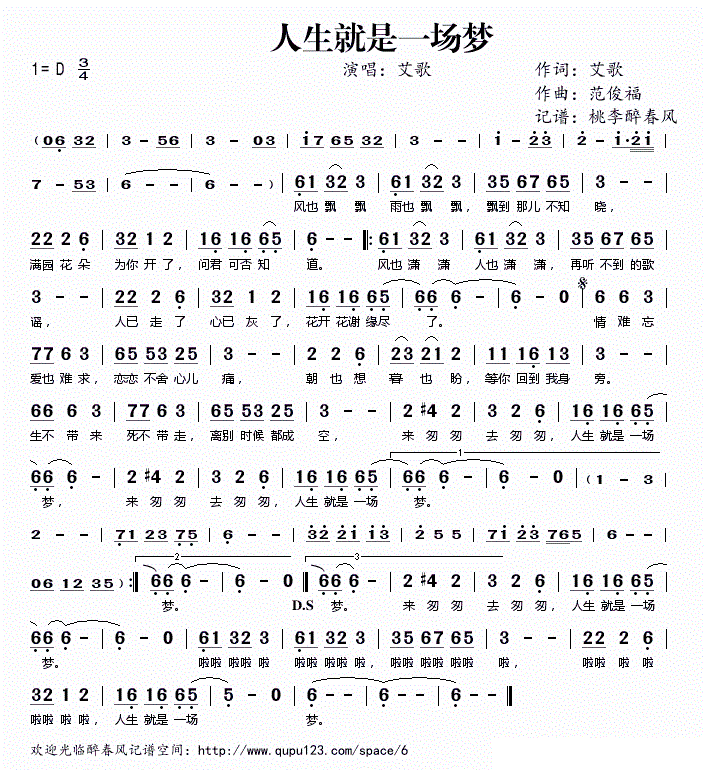 人生就是一场梦
1=D 3/4 演唱：艾歌 作词：艾歌
作曲：范俊福
记谱：桃李醉春风
(06 32 | 3 - 56 | 3 - 03 | i7 65 32 | 3 - - | i - 23 | 2 - i·2i |
7 - 53 | 6 - - | 6 - - ) | 61 32 3 | 61 32 3 | 35 67 65 | 3 - - |
风也 飘 飘 雨也 飘 飘， 飘到 那儿 不知 晓，
22 2 6 | 32 1 2 | 16 16 65 | 6 - - ‖: 61 32 3 | 61 32 3 | 35 67 65 |
满园 花 朵 为你 开 了， 问君 可否 知 道。 风也 潇 潇 人也 潇 潇， 再听 不到 的歌
3 - - | 22 2 6 | 32 1 2 | 16 16 65 | 66 6 - | 6 - 0 | 6 6 3 |
谣， 人已 走 了 心已 灰 了， 花开 花谢 缘尽 了。 情 难 忘
77 6 3 | 65 53 25 | 3 - - | 2 2 6 | 23 21 2 | 11 16 13 | 3 - - |
爱也 难 求， 恋恋 不舍 心儿 痛， 朝 也 想 暮 也 盼， 等你 回到 我身 旁。
66 6 3 | 77 6 3 | 65 53 25 | 3 - - | 2 #4 2 | 3 2 6 | 16 16 65 |
生不 带 来 死不 带 走， 离别 时候 都成 空， 来 匆 匆 去 匆 匆， 人生 就是 一场
1
66 6 - | 2 #4 2 | 3 2 6 | 16 16 65 | 66 6 - | 6 - 0 | (1 - 3 |
梦， 来 匆 匆 去 匆 匆， 人生 就是 一场 梦。
2 - - | 71 23 75 | 6 - - | 32 2i i3 | 2 5 5 | 7i 23 765 | 6 - - |
2 3
06 12 35) :‖ 66 6 - | 6 - 0 ‖ 66 6 - | 2 #4 2 | 3 2 6 | 16 16 65 |
梦。 D.S 梦。 来 匆 匆 去 匆 匆， 人生 就是 一场
66 6 - | 6 - 0 | 61 32 3 | 61 32 3 | 35 67 65 | 3 - - | 22 2 6 |
梦。 啦啦 啦啦 啦 啦啦 啦啦 啦， 啦啦 啦啦 啦啦 啦， 啦啦 啦 啦
32 1 2 | 16 16 65 | 5 - 0 | 6 - - | 6 - - ‖
啦啦 啦 啦， 人生 就是 一场 梦。
欢迎光临醉春风记谱空间：http://www.qupu123.com/space/6